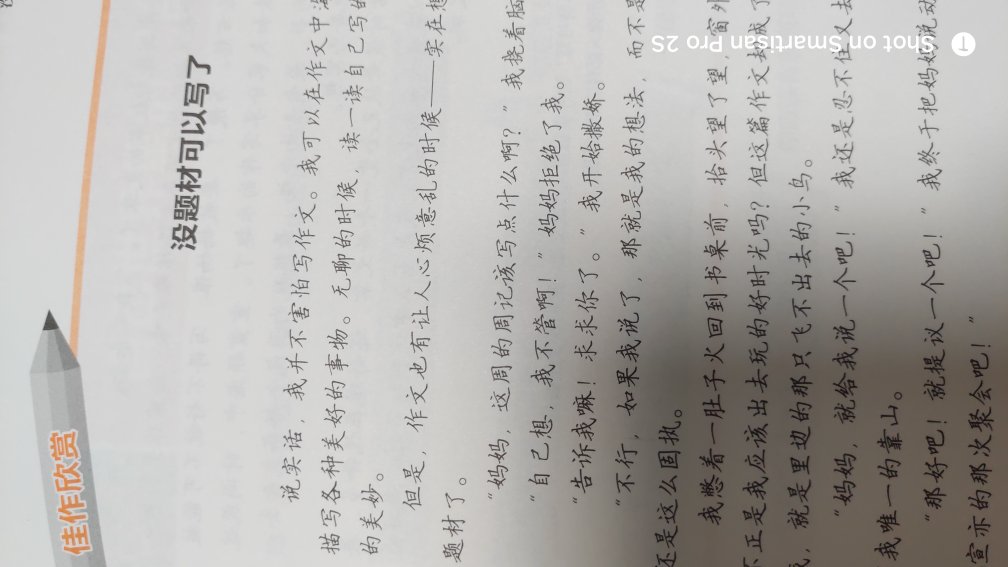 佳作欣赏
没题材可以写了
说实话，我并不害怕写作文。我可以在作文中
描写各种美好的事物。无聊的时候，读一读自己写的
的美妙。
但是，作文也有让人心烦意乱的时候——实在想
题材了。
“妈妈，这周的周记该写点什么啊？”我挠着脑
“自己想，我不管啊！”妈妈拒绝了我。
“告诉我嘛！求求你了。”我开始撒娇。
“不行，如果我说了，那就是我的想法，而不是
还是这么固执。
我憋着一肚子火回到书桌前，抬头望了望，窗外
不正是我应该出去玩的好时光吗？但这篇作文却成了
，就是里边的那只飞不出去的小鸟。
“妈妈，就给我说一个吧！”我还是忍不住又去
我唯一的靠山。
“那好吧！就提议一个吧！”我终于把妈妈说动
宣亦的那次聚会吧！”
Shot on Smartisan Pro 2S